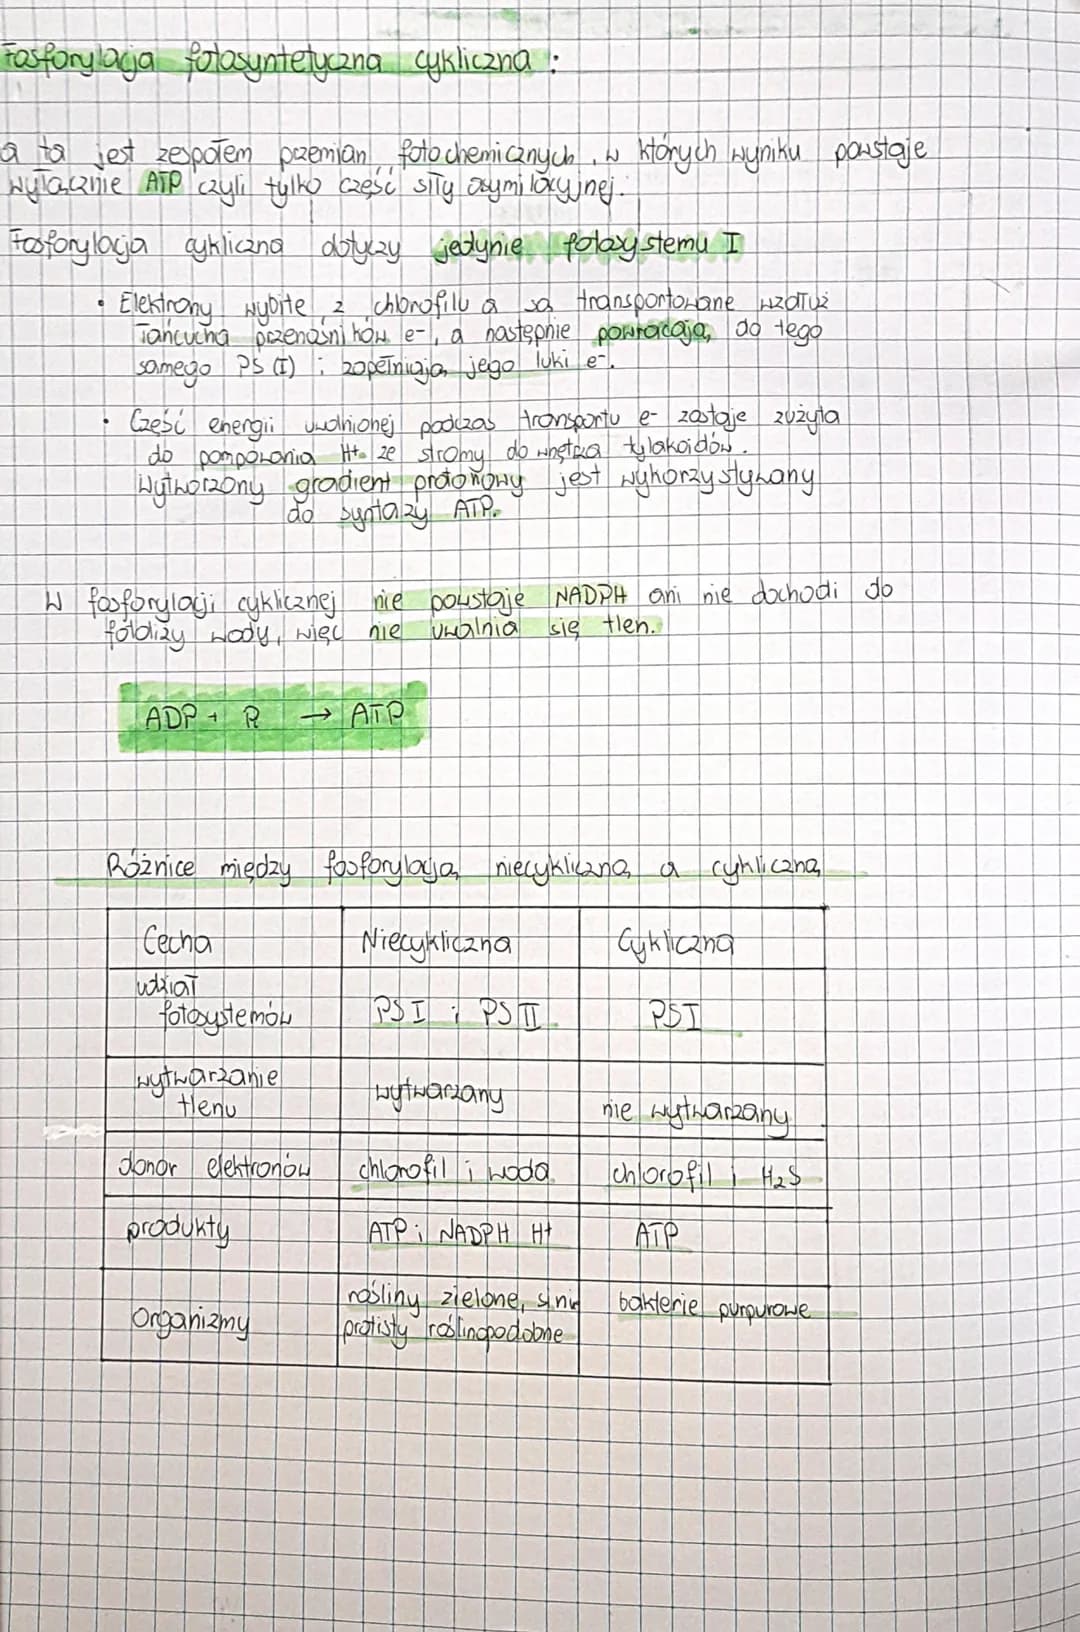 Fosforylacja fotosyntetyczna cykliczna :
a ta jest zespołem przemian fotochemicznych, w których wyniku powstaje
wyłącznie ATP czyli tylko część siły asymilacyjnej.
Fosforylacja cykliczna dotyczy jedynie fotosystemu I
• Elektrony wybite z chlorofilu a są transportowane wzdłuż
łańcucha przenośników e-, a następnie powracają do tego
samego PS (I) i zapełniają jego luki e-.
• Część energii uwolnionej podczas transportu e- zostaje zużyta
do pompowania H+ ze stromy do wnętrza tylakoidów.
Wytworzony gradient protonowy jest wykorzystywany
do syntazy ATP.
W fosforylacji cyklicznej nie powstaje NADPH ani nie dochodi do
fotolizy wody, więc nie uwalnia się tlen.
ADP + Pi → ATP
Różnice między fosforylacją niecykliczną a cykliczną
Cecha Niecykliczna Cykliczna
udział
fotosystemów PS I i PS II PSI
wytwarzanie
tlenu wytwarzany nie wytwarzany
donor elektronów chlorofil i woda chlorofil i H2S
produkty ATP i NADPH H+ ATP
organizmy rośliny zielone, sinice bakterie purpurowe
protisty roślinopodobne